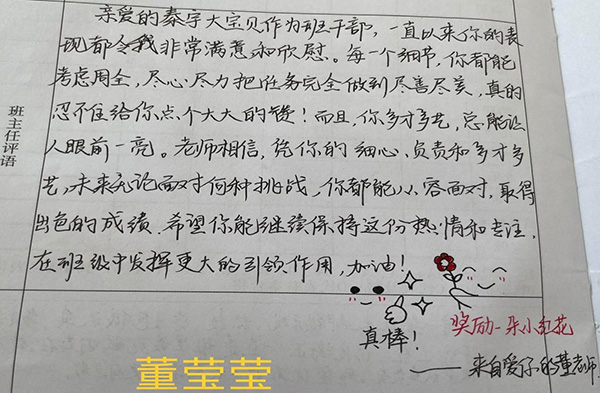 班主任评语
亲爱的泰宇大宝贝作为班干部，一直以来你的表
现都令我非常满意和欣慰。每一个细节，你都能
考虑周全，尽心尽力把任务完全做到尽善尽美，真的
忍不住给你点个大大的赞！而且，你多才多艺，总能让
人眼前一亮。老师相信，凭你的细心、负责和多才多
艺，未来无论面对何种挑战，你都能从容面对，取得
出色的成绩。希望你能继续保持这份热情和专注，
在班级中发挥更大的引领作用，加油！
真棒！
奖励一朵小红花
——来自爱你的董老师
董莹莹